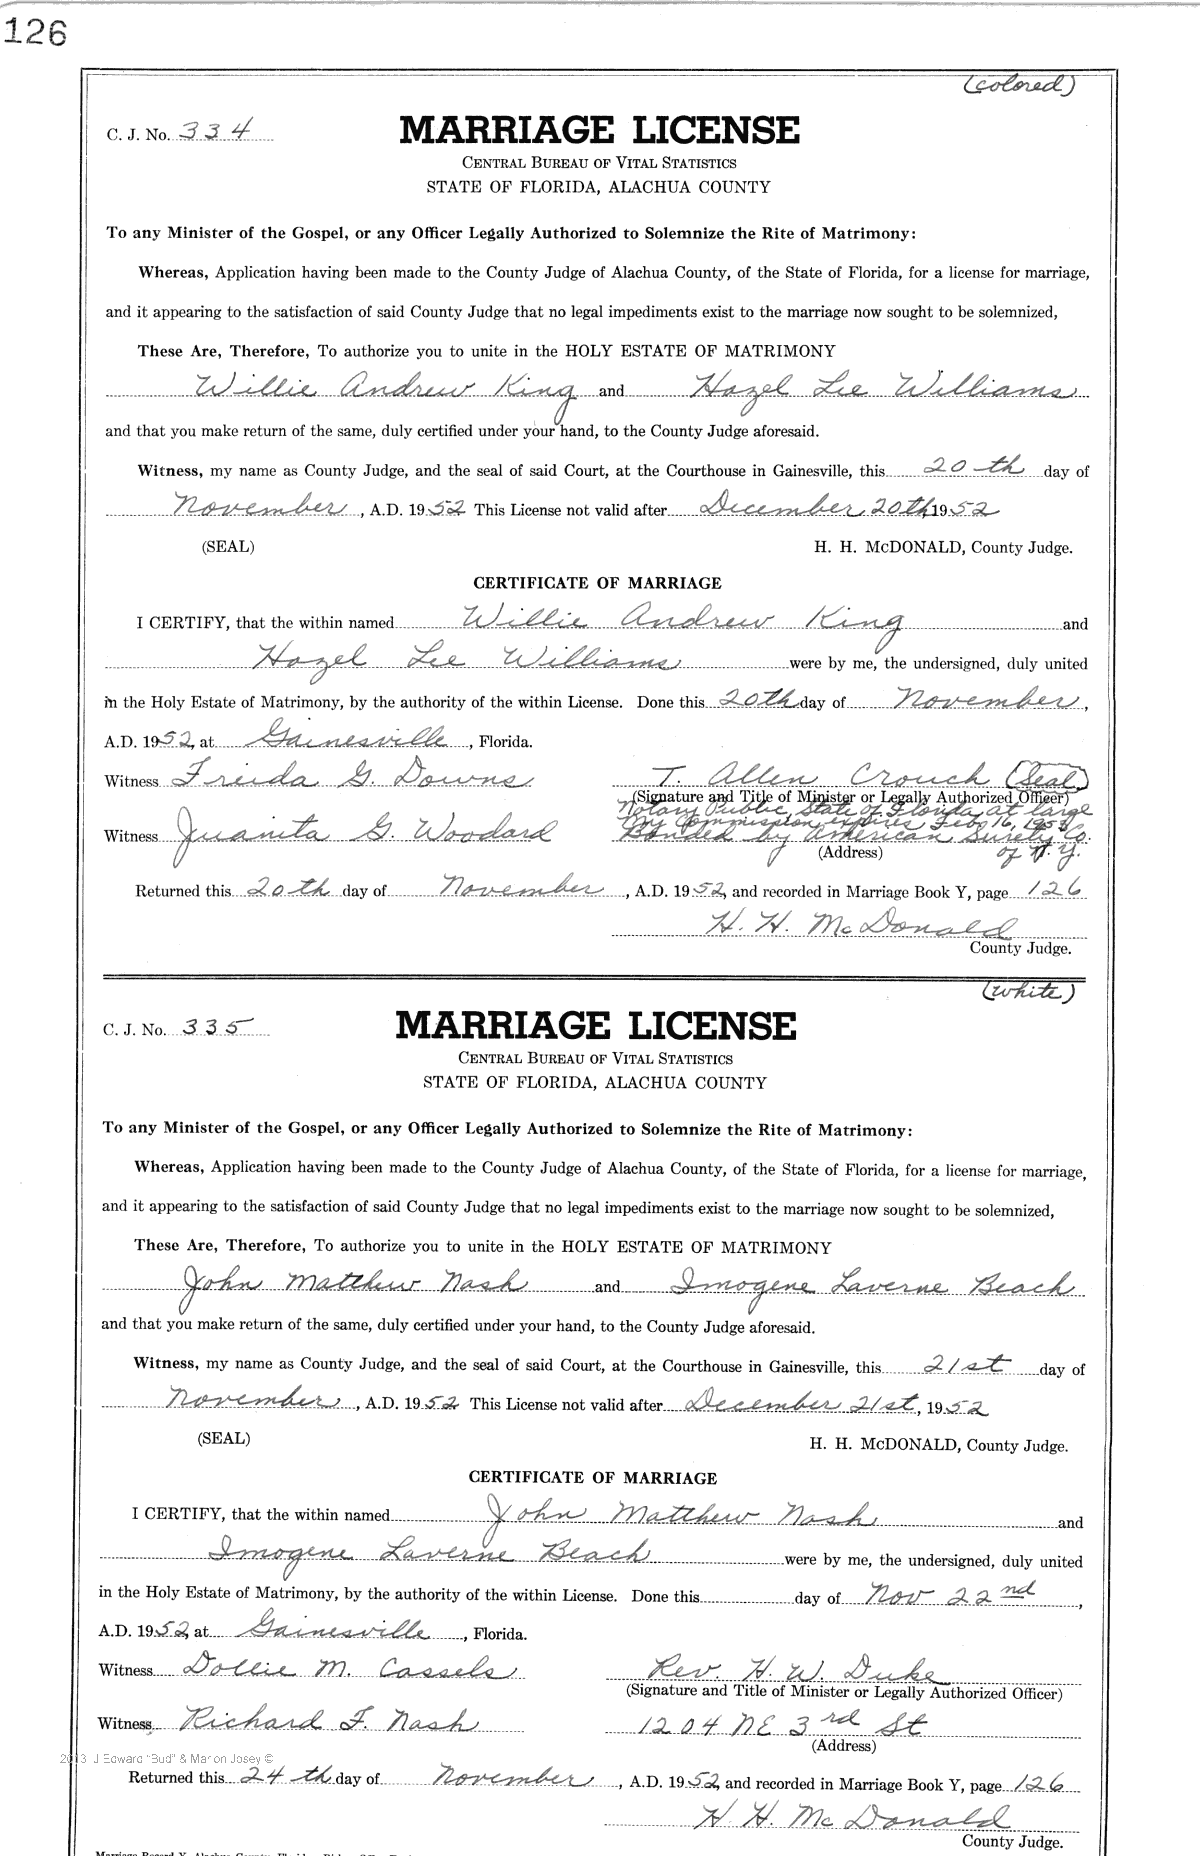 126
(colored)
C. J. No. 334
MARRIAGE LICENSE
CENTRAL BUREAU OF VITAL STATISTICS
STATE OF FLORIDA, ALACHUA COUNTY
To any Minister of the Gospel, or any Officer Legally Authorized to Solemnize the Rite of Matrimony:
Whereas, Application having been made to the County Judge of Alachua County, of the State of Florida, for a license for marriage,
and it appearing to the satisfaction of said County Judge that no legal impediments exist to the marriage now sought to be solemnized,
These Are, Therefore, To authorize you to unite in the HOLY ESTATE OF MATRIMONY
Willie Andrew King and Hazel Lee Williams
and that you make return of the same, duly certified under your hand, to the County Judge aforesaid.
Witness, my name as County Judge, and the seal of said Court, at the Courthouse in Gainesville, this 20th day of
November, A.D. 1952 This License not valid after December 20th, 1952
(SEAL) H. H. McDONALD, County Judge.
CERTIFICATE OF MARRIAGE
I CERTIFY, that the within named Willie Andrew King and
Hazel Lee Williams were by me, the undersigned, duly united
in the Holy Estate of Matrimony, by the authority of the within License. Done this 20th day of November,
A.D. 1952, at Gainesville, Florida.
Witness Freida G. Downs T. Allen Crouch (Seal)
(Signature and Title of Minister or Legally Authorized Officer)
Notary Public, State of Florida at large
My Commission expires Feb. 16, 1953
Witness Juanita G. Woodard Bonded by American Surety Co.
(Address) of N.Y.
Returned this 20th day of November, A.D. 1952, and recorded in Marriage Book Y, page 126
H. H. McDonald
County Judge.
(white)
C. J. No. 335
MARRIAGE LICENSE
CENTRAL BUREAU OF VITAL STATISTICS
STATE OF FLORIDA, ALACHUA COUNTY
To any Minister of the Gospel, or any Officer Legally Authorized to Solemnize the Rite of Matrimony:
Whereas, Application having been made to the County Judge of Alachua County, of the State of Florida, for a license for marriage,
and it appearing to the satisfaction of said County Judge that no legal impediments exist to the marriage now sought to be solemnized,
These Are, Therefore, To authorize you to unite in the HOLY ESTATE OF MATRIMONY
John Matthew Nash and Imogene Laverne Beach
and that you make return of the same, duly certified under your hand, to the County Judge aforesaid.
Witness, my name as County Judge, and the seal of said Court, at the Courthouse in Gainesville, this 21st day of
November, A.D. 1952 This License not valid after December 21st, 1952
(SEAL) H. H. McDONALD, County Judge.
CERTIFICATE OF MARRIAGE
I CERTIFY, that the within named John Matthew Nash and
Imogene Laverne Beach were by me, the undersigned, duly united
in the Holy Estate of Matrimony, by the authority of the within License. Done this day of Nov 22nd,
A.D. 1952, at Gainesville, Florida.
Witness Dollie M. Cassels Rev. H. W. Duke
(Signature and Title of Minister or Legally Authorized Officer)
Witness Richard F. Nash 1204 NE 3rd St
(Address)
2013 J Edward "Bud" & Marion Josey ©
Returned this 24th day of November, A.D. 1952, and recorded in Marriage Book Y, page 126
H. H. McDonald
County Judge.